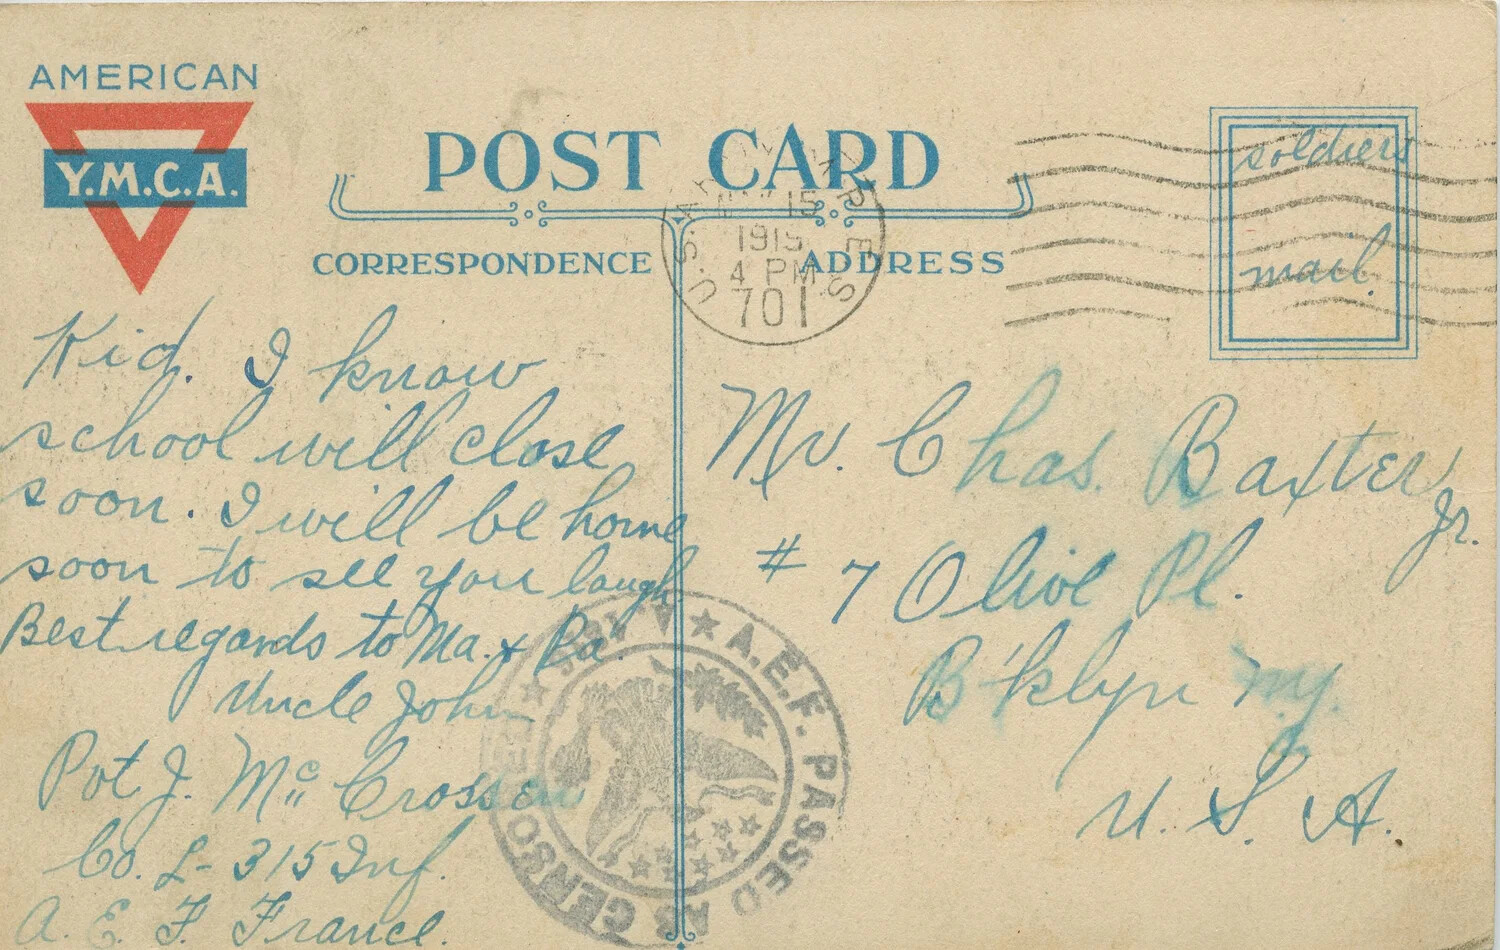 AMERICAN
Y.M.C.A.
POST CARD
CORRESPONDENCE
ADDRESS
U.S. ARMY M.P.E.S.
15
1919
4 PM
701
soldiers
mail.
Kid. I know
school will close
soon. I will be home
soon to see you laugh
Best regards to Ma. & Pa.
Uncle John
Pvt J. McCrossen
Co. L- 315 Inf.
A. E. F. France.
Mr. Chas. Baxter Jr.
# 7 Olive Pl.
B'klyn N.Y.
U. S. A.
A.E.F. PASSED AS CENSORED